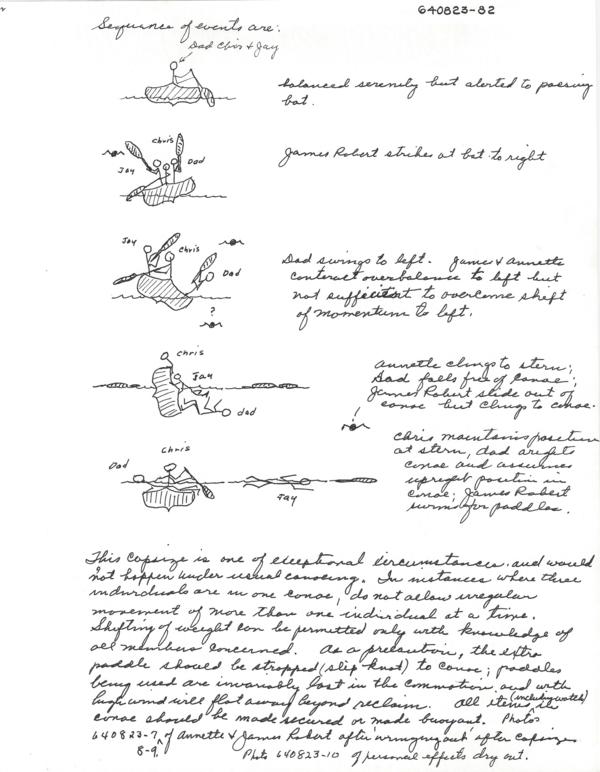 640823-82
Sequence of events are:
Dad Chris & Jay
balanced serenely but alerted to passing
bat.
Chris
Jay
Dad
James Robert strikes at bat to right
Jay
Chris
Dad
?
Dad swings to left. James & Annette
conteract overbalance to left but
not sufficient to overcome shift
of momentum to left.
Chris
Jay
Dad
Annette clings to stern;
Dad falls free of canoe;
James Robert slide out of
canoe but clings to canoe.
Chris
Dad
Jay
Chris maintains position
at stern, dad arights
canoe and assumes
upright position in
canoe; James Robert
swims for paddles.
This capsize is one of exceptional circumstances and would
not happen under usual canoeing. In instances where three
individuals are in one canoe, do not allow irregular
movement of more than one individual at a time.
Shifting of weight can be permitted only with knowledge of
all members concerned. As a precaution, the extra
paddle should be strapped (slip knot) to canoe; paddles
being used are invariably lost in the commotion and with
high wind will float away beyond reclaim. All items (including watch) in
canoe should be made secured or made buoyant. Photos
640823-7, 8-9, of Annette & James Robert after wringing out after capsize
Photo 640823-10 of personal effects dry out.